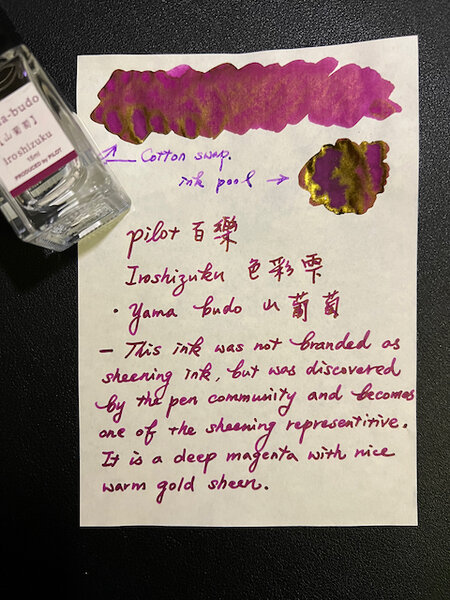 a-budo
【山葡萄】
iroshizuku
15ml
PRODUCED by PILOT
Cotton swap.
ink pool →
pilot 百樂
Iroshizuku 色彩雫
· Yama budo 山葡萄
— This ink was not branded as
sheening ink, but was discovered
by the pen community and becomes
one of the sheening representitive.
It is a deep magenta with nice
warm gold sheen.